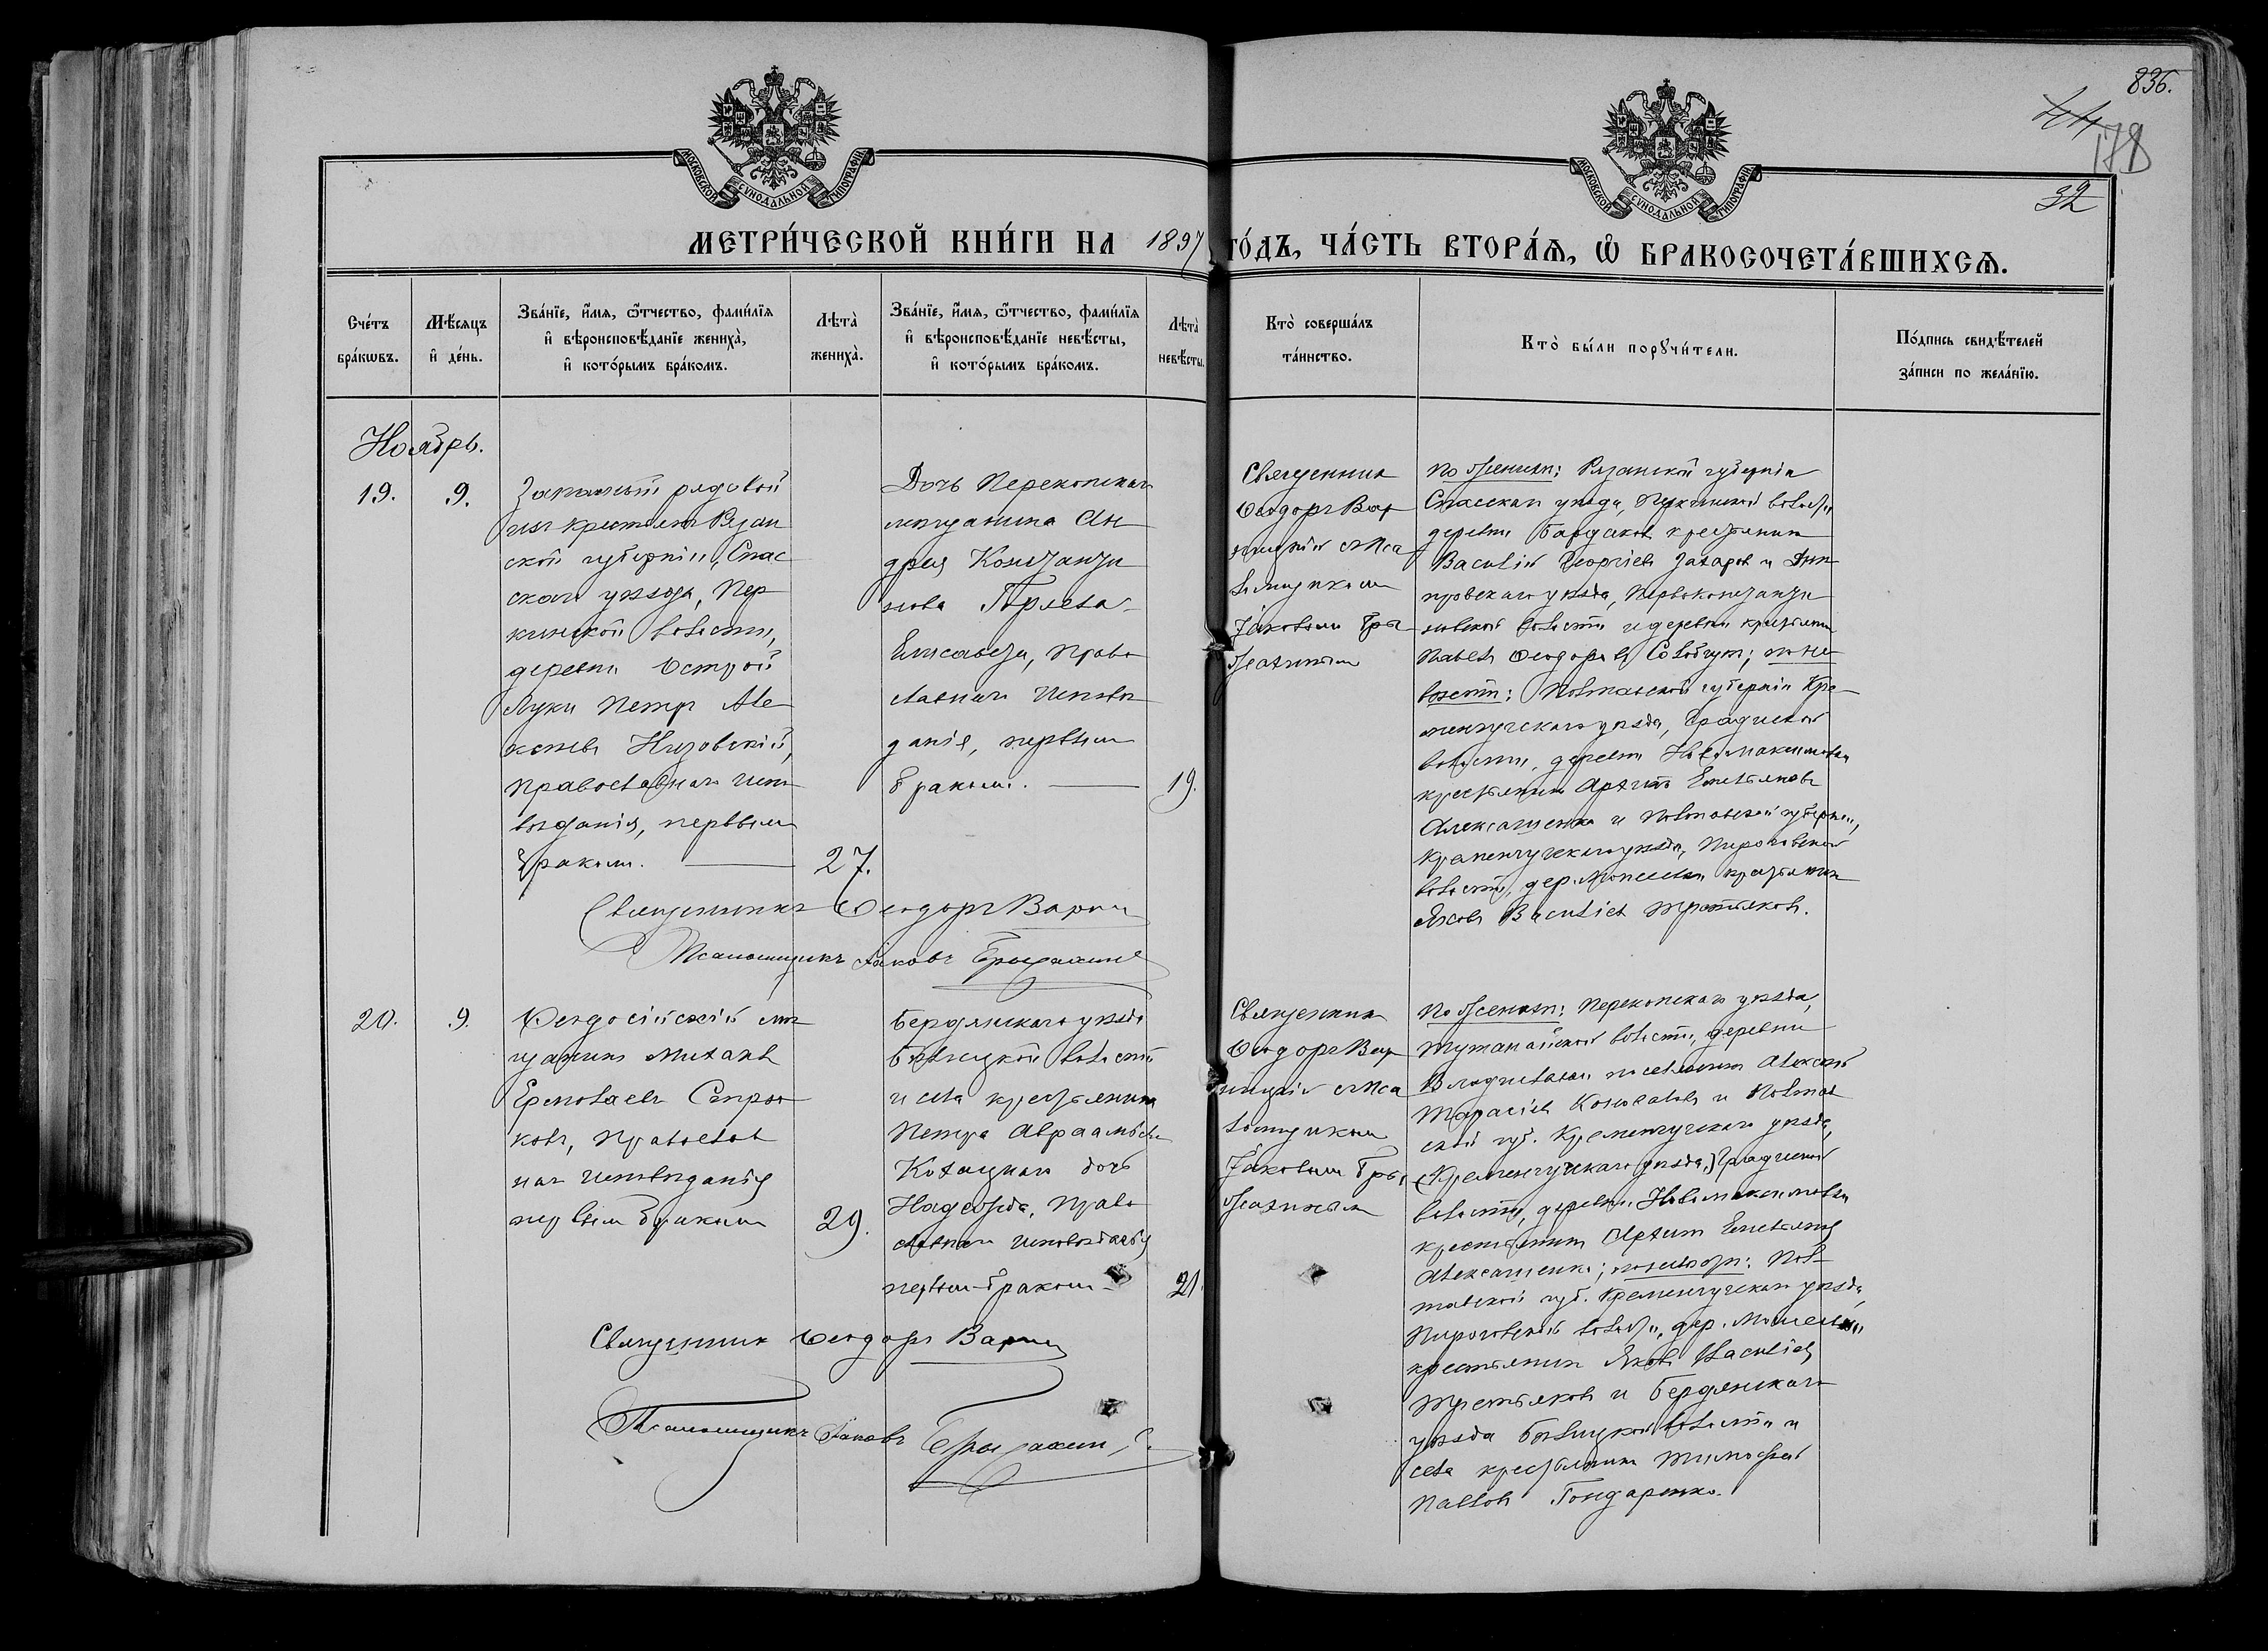 836.
44
178
32
МОСКОВСКОЙ СѴНОДАЛЬНОЙ ТИПОГРАФІИ
МОСКОВСКОЙ СѴНОДАЛЬНОЙ ТИПОГРАФІИ
МЕТРИ́ЧЕСКОЙ КНИ́ГИ НА 1897 ГО́ДЪ, ЧА́СТЬ ВТОРА́Ѧ, Ѽ БРАКОСОЧЕТА́ВШИХСѦ.
Сче́тъ бра́кѡвъ.
Мѣ́сяцъ и҆ де́нь.
Зва́нїе, и҆́мѧ, ѻ҆́тчество, фами́лїѧ и҆ вѣроисповѣ́данїе жениха̀, и҆ кото́рымъ бра́комъ.
Лѣта̀ жениха̀.
Зва́нїе, и҆́мѧ, ѻ҆́тчество, фами́лїѧ и҆ вѣроисповѣ́данїе невѣ́сты, и҆ кото́рымъ бра́комъ.
Лѣта̀ невѣ́сты.
Кто̀ соверша́лъ та́инство.
Кто̀ бы́ли порꙋчи́тели.
По́дпись свидѣ́телей за́писи по жела́нїю.
Ноябрь.
19.
9.
Запасный рядовой
изъ крестьянъ Рязан
ской губерніи, Спас
скаго уѣзда, Пер
кинской волости,
деревни Острой
Луки Петръ Але
ксѣевъ Низовскій,
православнаго испо
вѣданія, первымъ
бракомъ.
27.
Дочь Перекопскаго
мещанина Ан
дрея Константи
нова Горлева
Елисавета, право
славнаго исповѣ
данія, первымъ
бракомъ.
19.
Священник
Ѳеодоръ Вар
ницкій с Пса
ломщикомъ
Іаковомъ Бры
жахинымъ
По женихѣ: Рязанской губерніи
Спасскаго уѣзда, Перкинской волости
деревни Бардаков крестьянин
Василій Георгіевъ Захаров и Днѣ
провскаго уѣзда, Первоконстанти
новской волости и деревни крестьянин
Павелъ Ѳеодоровъ Совбгут; по не
вѣстѣ: Полтавской губерніи Кре
менчугскаго уѣзда, Градижской
волости, деревни Новомаксимовки
крестьянин Архипъ Емельяновъ
Алексашенко и Полтавской губерніи,
Кременчугскаго уѣзда, Пироговской
волости, дер. крестьянин
Яковъ Васильевъ Третьяков.
Священникъ Ѳеодоръ Варни
Псаломщикъ Іаковъ Брыжахинъ
20.
9.
Ѳеодосійскій мѣ
щанинъ Михаилъ
Ермолаевъ Сапро
ковъ, Православ
наго исповѣданія
первымъ бракомъ
29.
Бердянскаго уѣзда
волости
и села крестьянина
Петра Авраамьева
дочь
Надежда, право
славнаго исповѣданія
первым бракомъ
21.
Священник
Ѳеодоръ Вар
ницкій с Пса
ломщиком
Іаковомъ Бры
жахиным
По женихѣ: Перекопскаго уѣзда,
волости, деревни
Владиславки поселянин Алексѣй
Тарасіевъ Коновалов и Полтав
ской губ. Кременчугскаго уѣзда,
(Кременчугскаго уѣзда,) Градижской
волости, деревни Новомаксимовки
крестьянин Архип Емельянов
Алексашенко; по невѣстѣ: Пол
тавской губ. Кременчугскаго уѣзда,
Пироговской волости, дер.
крестьянин Яков Василіев
Третьяков и Бердянскаго
уѣзда волости и
села крестьянин Тимофей
Павлов Гондаренко.
Священник Ѳеодоръ Варни
Псаломщикъ Іаковъ Брыжахинъ